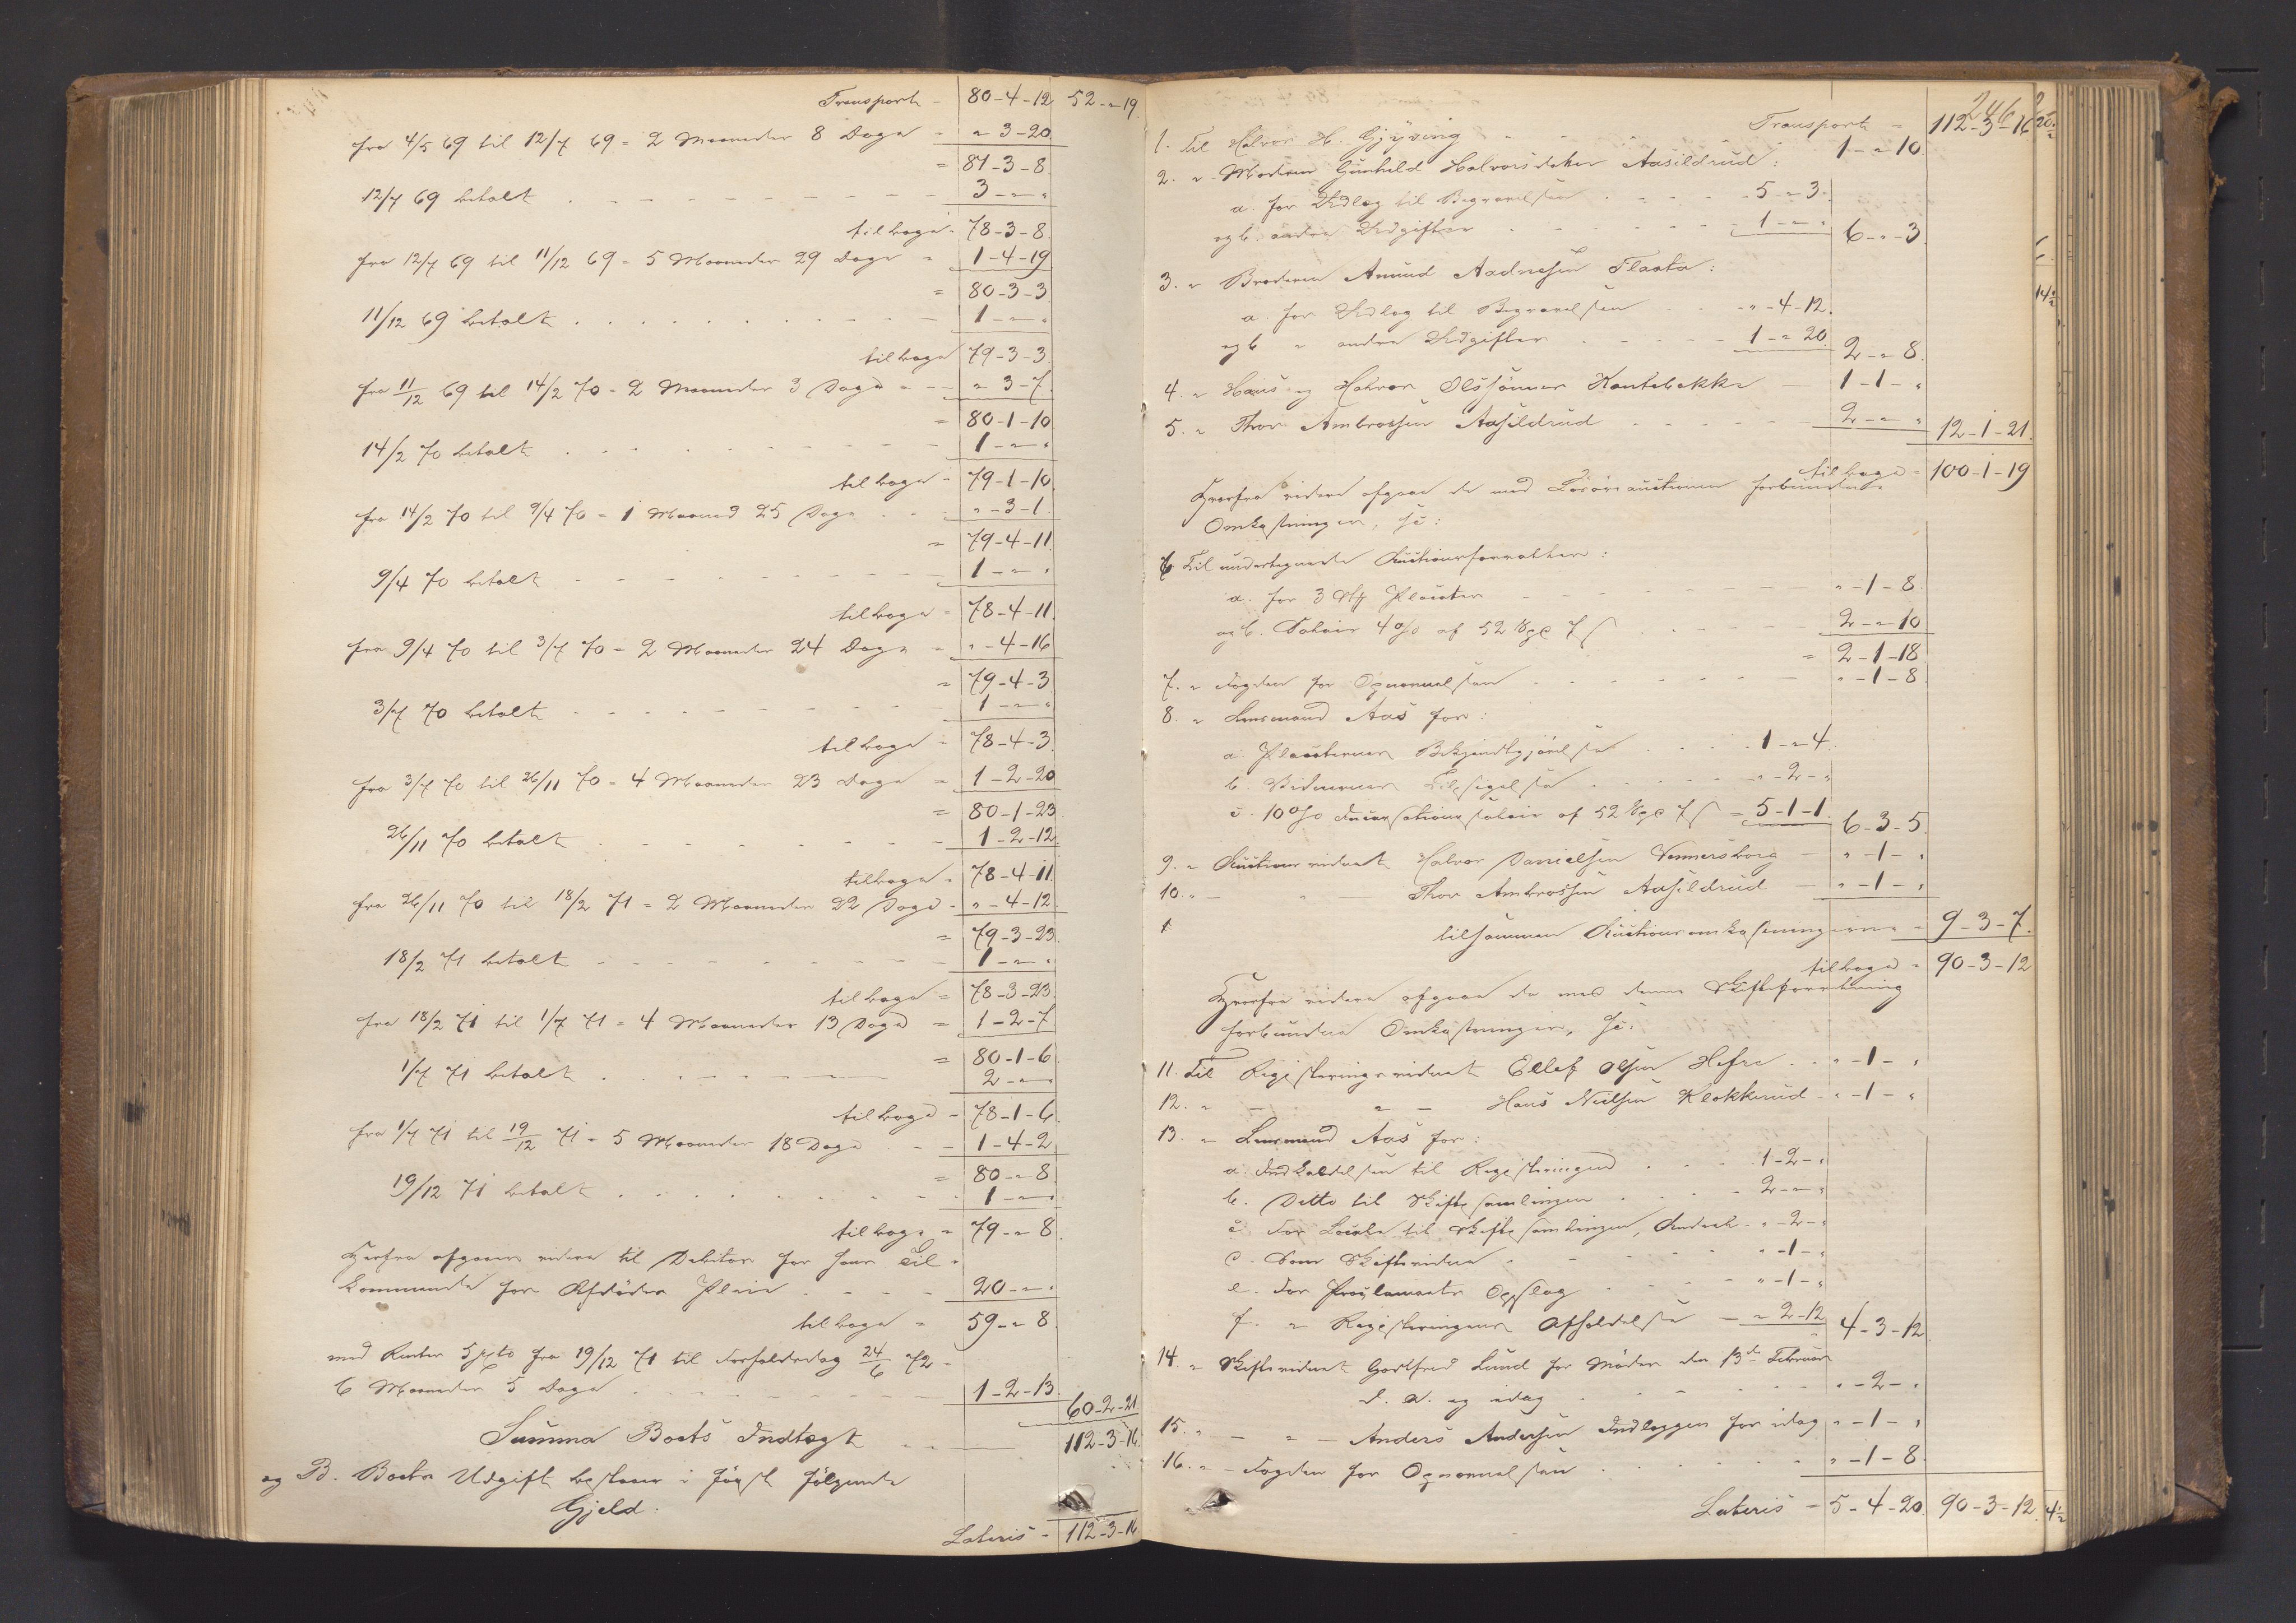 Transport - 80-4-12 52-"-19
fra 4/5 69 til 12/7 69 = 2 Maaneder 8 Dage - " 3-20
= 81-3-8
12/7 69 betalt 3-"-"
tilbage - 78-3-8
fra 12/7 69 til 11/12 69 = 5 Maaneder 29 Dage = 1-4-19
= 80-3-3
11/12 69 betalt 1-"-"
tilbage 79-3-3
fra 11/12 69 til 14/2 70 = 2 Maaneder 3 Dage = " 3-7
= 80-1-10
14/2 70 betalt 1-"-"
tilbage - 79-1-10
fra 14/2 70 til 9/4 70 = 1 Maaned 25 Dage "-3-1
= 79-4-11
9/4 70 betalt 1-"-"
tilbage = 78-4-11
fra 9/4 70 til 3/7 70 = 2 Maaneder 24 Dage = "-4-16
= 79-4-3
3/7 70 betalt 1-"-"
tilbage = 78-4-3
fra 3/7 70 til 26/11 70 = 4 Maaneder 23 Dage = 1-2-20
= 80-1-23
26/11 70 betalt 1-2-12
tilbage = 78-4-11
fra 26/11 70 til 18/2 71 = 2 Maaneder 22 Dage - "-4-12
= 79-3-23
18/2 71 betalt 1-"-"
tilbage = 78-3-23
fra 18/2 71 til 1/7 71 = 4 Maaneder 13 Dage = 1-2-7
= 80-1-6
1/7 71 betalt 2-"-"
tilbage = 78-1-6
fra 1/7 71 til 19/12 71 = 5 Maaneder 18 Dage - 1-4-2
= 80-"-8
19/12 71 betalt 1-"-"
tilbage = 79-"-8
Herfra afgaaer videre til Debitor for hans Til-
kommende for Afdødes Pleie 20-"-"
tilbage = 59-"-8
med Renter 5 pCto fra 19/12 71 til Forfaldsdag 24/6 72 =
6 Maaneder 5 Dage 1-2-13
60-2-21
Summa Boets Indtægt 112-3-16
og B. Boets Udgift bestaaer i først følgende
Gjeld:
Lateris - 112-3-16
246
Transport = 112-3-16
1. Til Halvor H. Gjyving 1-"-10
2. " Moderen Gunhild Halvorsdatter Aasildrud:
a. for Udlæg til Begravelsen 5-"-3
og b. andre Udgifter 1-"-" 6-"-3
3. " Broderen Amund Aadnesen Flaata:
a. for Udlæg til Begravelsen "-4-12
og b " andre Udgifter 1-"-20 2-"-8
4. " Hans og Halvor Olssønner Kantebakke 1-1-"
5. " Thor Ambrossen Aasildrud 2-"-" 12-1-21
tilbage = 100-1-19
Hvorfra videre afgaae de med Løsøreauctionen forbundne
Omkostninger, sc:
6 Til undertegnede Auctionsforvalter:
a. for 3 Stk Placater "-1-8
og b. Salair 4 % af 52 Spd 7 s 2-"-10
= 2-1-18
7. " Fogden for Opnævnelsen "-1-8
8. " Lensmand Aas for:
a. Placaternes Bekjendtgjørelse 1-"-4
b. Vidnernes Tilsigelse "-2-"
c. 10 % Incassationssalair af 52 Spd 7 s = 5-1-1 6-3-5
9. " Auctionsvidnet Halvor Danielsen Vennersborg "-1-"
10. " - " - Thor Ambrossen Aasildrud "-1-"
tilsammen Auctionsomkostningerne = 9-3-7
tilbage = 90-3-12
Hvorfra videre afgaae de med denne Skifteforretning
forbundne Omkostninger, sc:
11. Til Registreringsvidnet Ellef Olsen Hefre "-1-"
12. " - " - Hans Neilsen Klokkerud "-1-"
13. " Lensmand Aas for:
a. Indkaldelsen til Registreringen 1-2-"
b. Ditto til Skiftesamlingen 2-"-"
c For Locale til Skiftesamlingen, Andeel "-2-"
d. Som Skiftevidne "-1-"
e. For Proclamaets Opslag "-1-"
f. " Registreringens Afholdelse "-2-12 4-3-12
14. " Skiftevidnet Gotfred Lund for Møder den 13de Februar
d. A. og idag "-2-"
15. " - " - Anders Andersen Indlæggen for idag "-1-"
16. " - Fogden for Opnævnelsen "-1-8
Lateris = 5-4-20 90-3-12